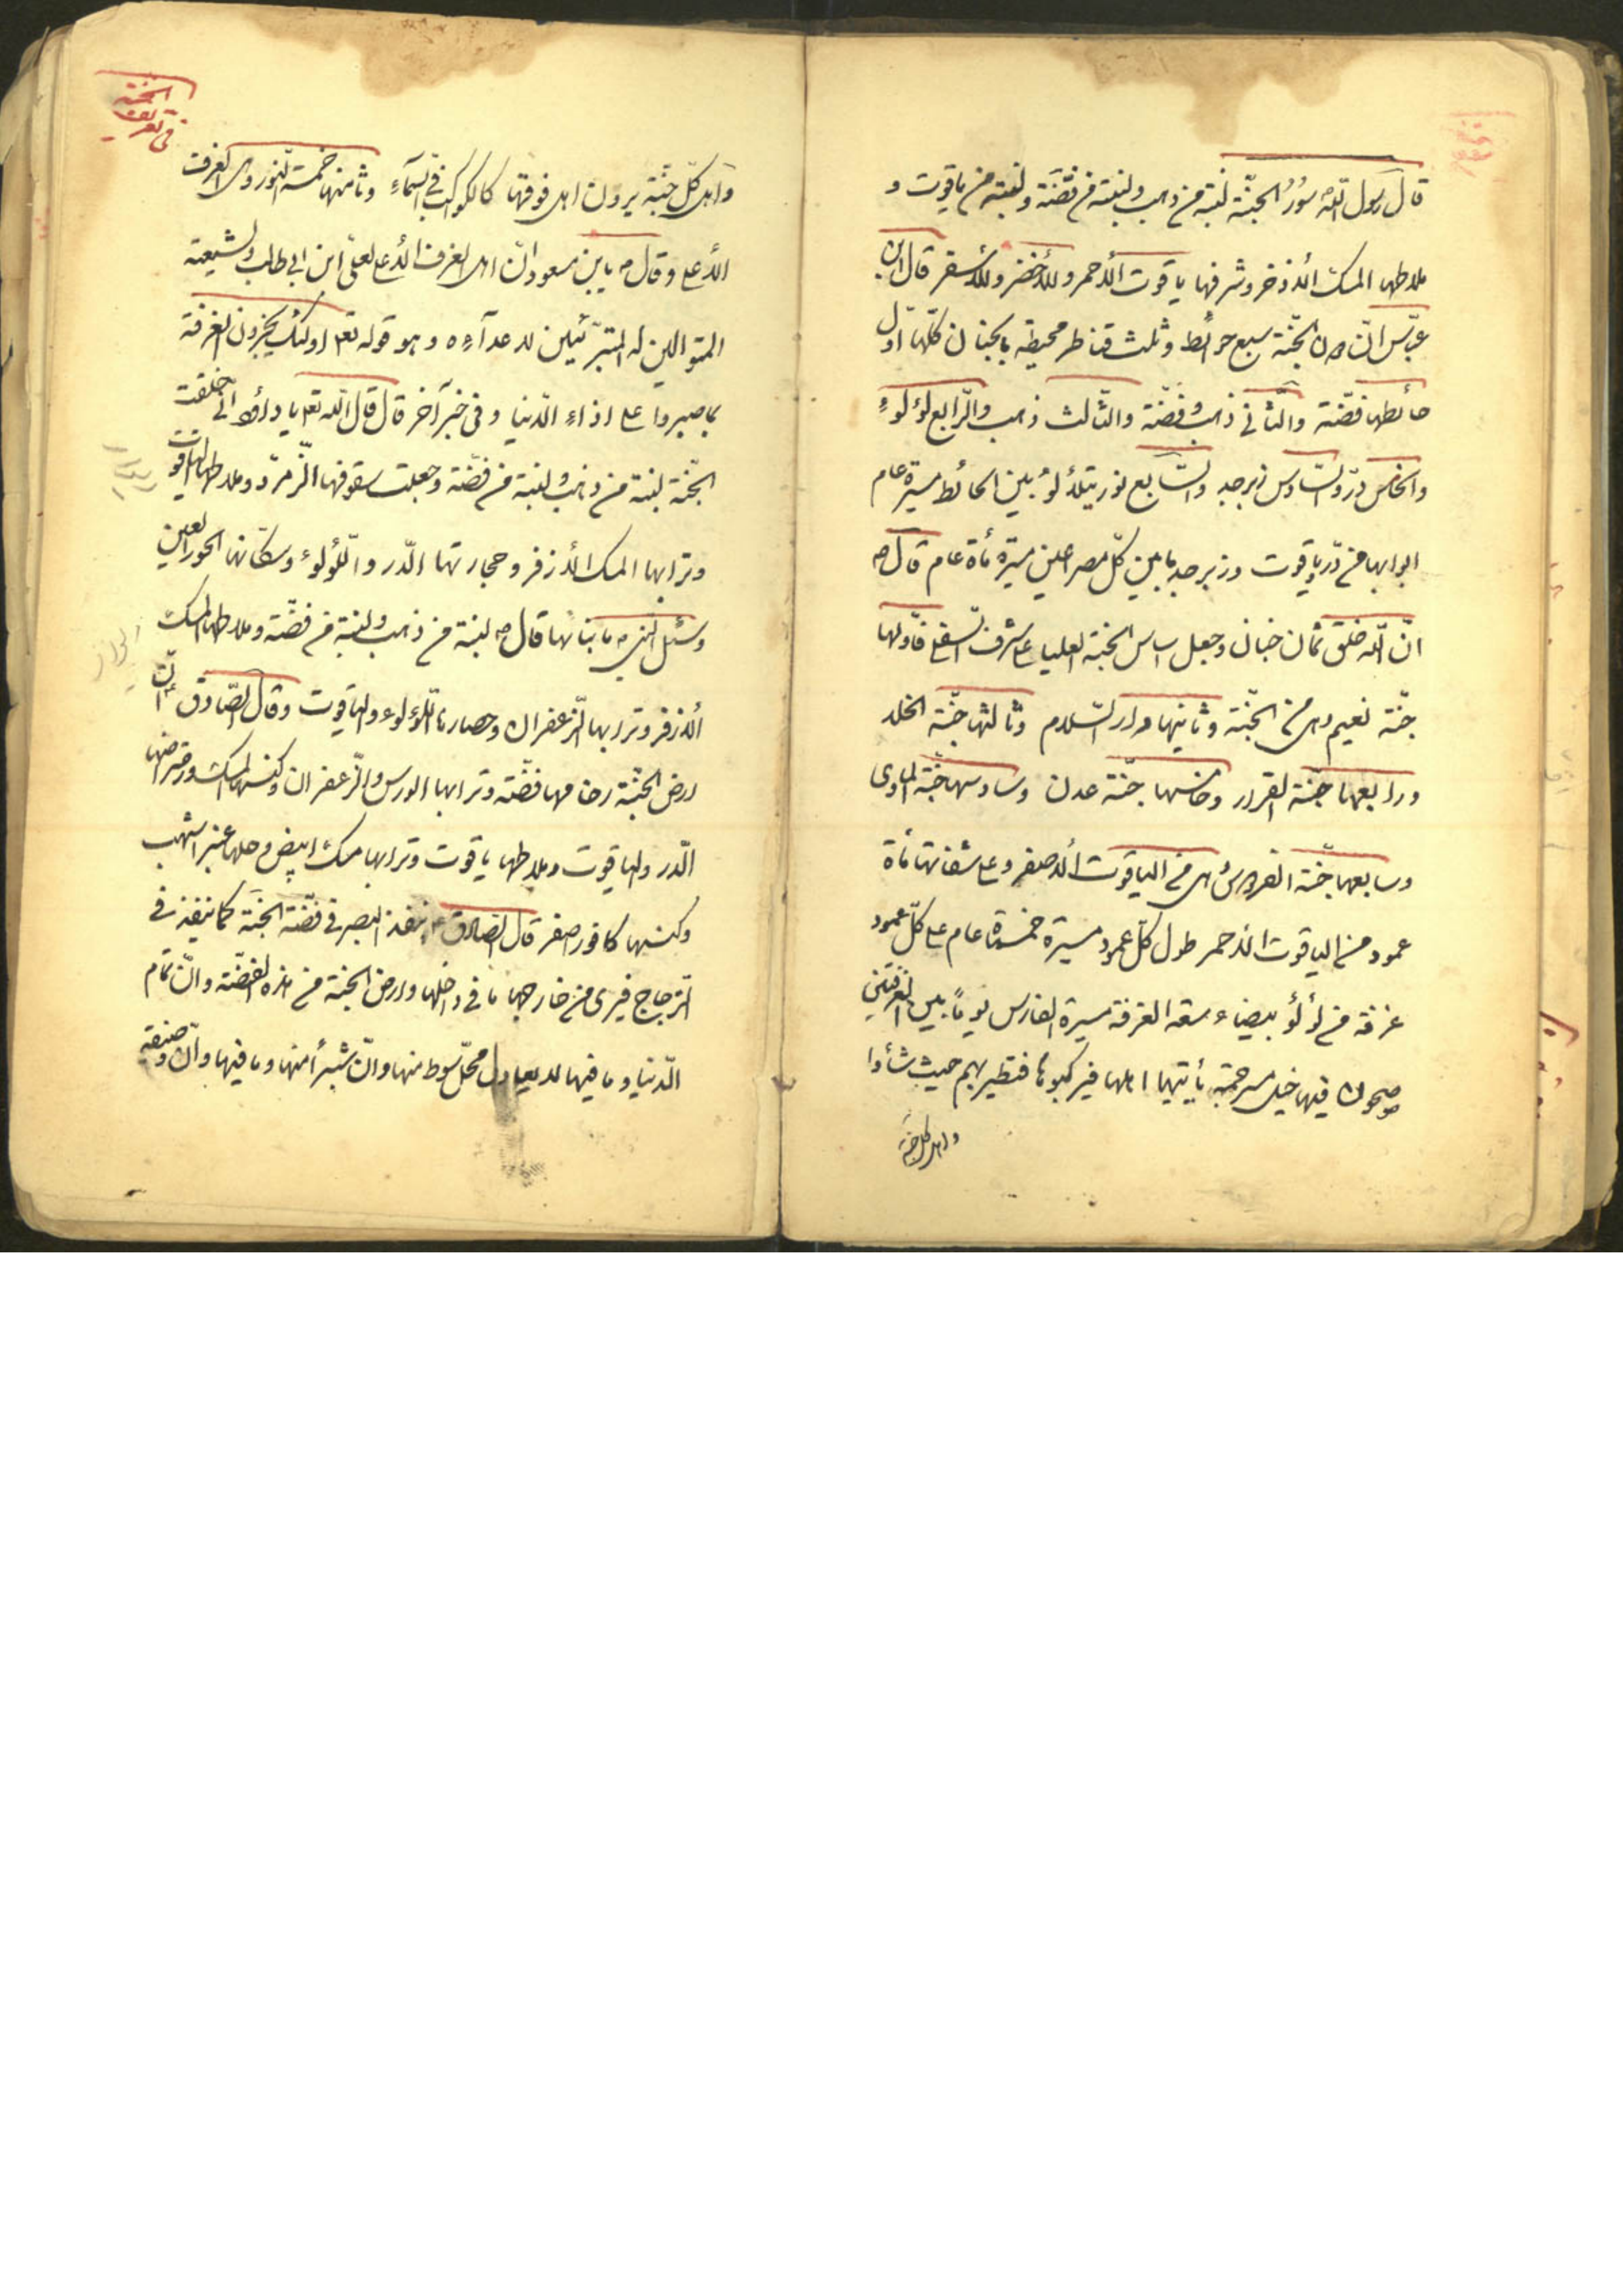 قال رسول اللّه سُورُ الجنّة لبنة من ذهب ولبنة من فضّة ولبنة من ياقوت و
ملاطها المسك الأذخر وشرفها ياقوت الأحمر والأخضر والأشقر قال ابن
عبّاس انّ للجنّة سبع حوائط وثلث قناطر محيطة بالجنان كلّها اول
حائطها فضّة والثّاني ذهب وفضّة والثّالث ذهب والرّابع لؤلوءٍ
والخامس درّ والسّادس زبرجد والسّابع نور يتلألؤ بين الحائط مسيرة عام
ابوابها من درّ وياقوت وزبرجد ما بين كلّ مصراعين مسيرة مأة عام قال ص
انّ اللّه خلق ثمان جنان وجعل اساس الجنة العليا على شرف السفلى فاولها
جنّة نعيم وهى من الجنّة وثانيها دار السّلام وثالثها جنّة الخلد
ورابعها جنّة القرار وخامسها جنّة عدن وسادسها جنّة المأوى
وسابعها جنّة الفردوس وهى من الياقوت الأصفر وعلى شفاتها مأة
عمود من الياقوت الاحمر طول كلّ عمود مسيرة خمسمأة عام على كلّ عمود
غرفة من لؤلؤ بيضاء سعة الغرفة مسيرة الفارس يوماً بين الغرفتين
فيها خيل مسرجة يأتيها اهلها فيركبونها فتطير بهم حيث شأوا
واهل كل جنّة
في تعريف
الجنّة
واهل كلّ جنّة يرون اهل فوقها كالكواكب في السمآءِ وثامنها خمسة النور وهى الغرفت
الأعلى وقال ص يا بن مسعود انّ اهل الغرف الأعلى لعلىّ ابن ابى طالب ولشيعته
المتوالين له المتبرّئين لاعدآءِه وهو قوله تعم اولئك يجزون الغرفة
بما صبروا على اذاءِ الدّنيا وفى خبر آخر قال قال اللّه تعم يا داؤد انّى خلقت
الجنّة لبنة من ذهب ولبنة من فضّة وجعلت سقوفها الزّمرّد وملاطها الياقوت
وترابها المسك الأذفر وحجارتها الدّر واللّؤلوء وسكّانها الحور العين
وسئل النبي ص ما بناءها قال ص لبنة من ذهب ولبنة من فضّة وملاطها المسك
الأذفر وترابها الزّعفران وحصارها اللّؤلوء والياقوت وقال الصّادق ع انّ
ارض الجنّة رخامها فضّة وترابها الورس والزّعفران وكنسها المسك ورضراضها
الدّر والياقوت وملاطها ياقوت وترابها مسك ابيض وحلها عنبر اشهب
وكنسها كافور اصفر قال الصّادق ع ينفذ البصر في فضّة الجنّة كما ينفذ في
الزّجاج فيرى من خارجها ما في داخلها وارض الجنّة من هذه الفضّة وانّ تمام
الدّنيا وما فيها لا يعادل محلّ سوط منها وانّ شبراً منها وما فيها وانّ وصيفة